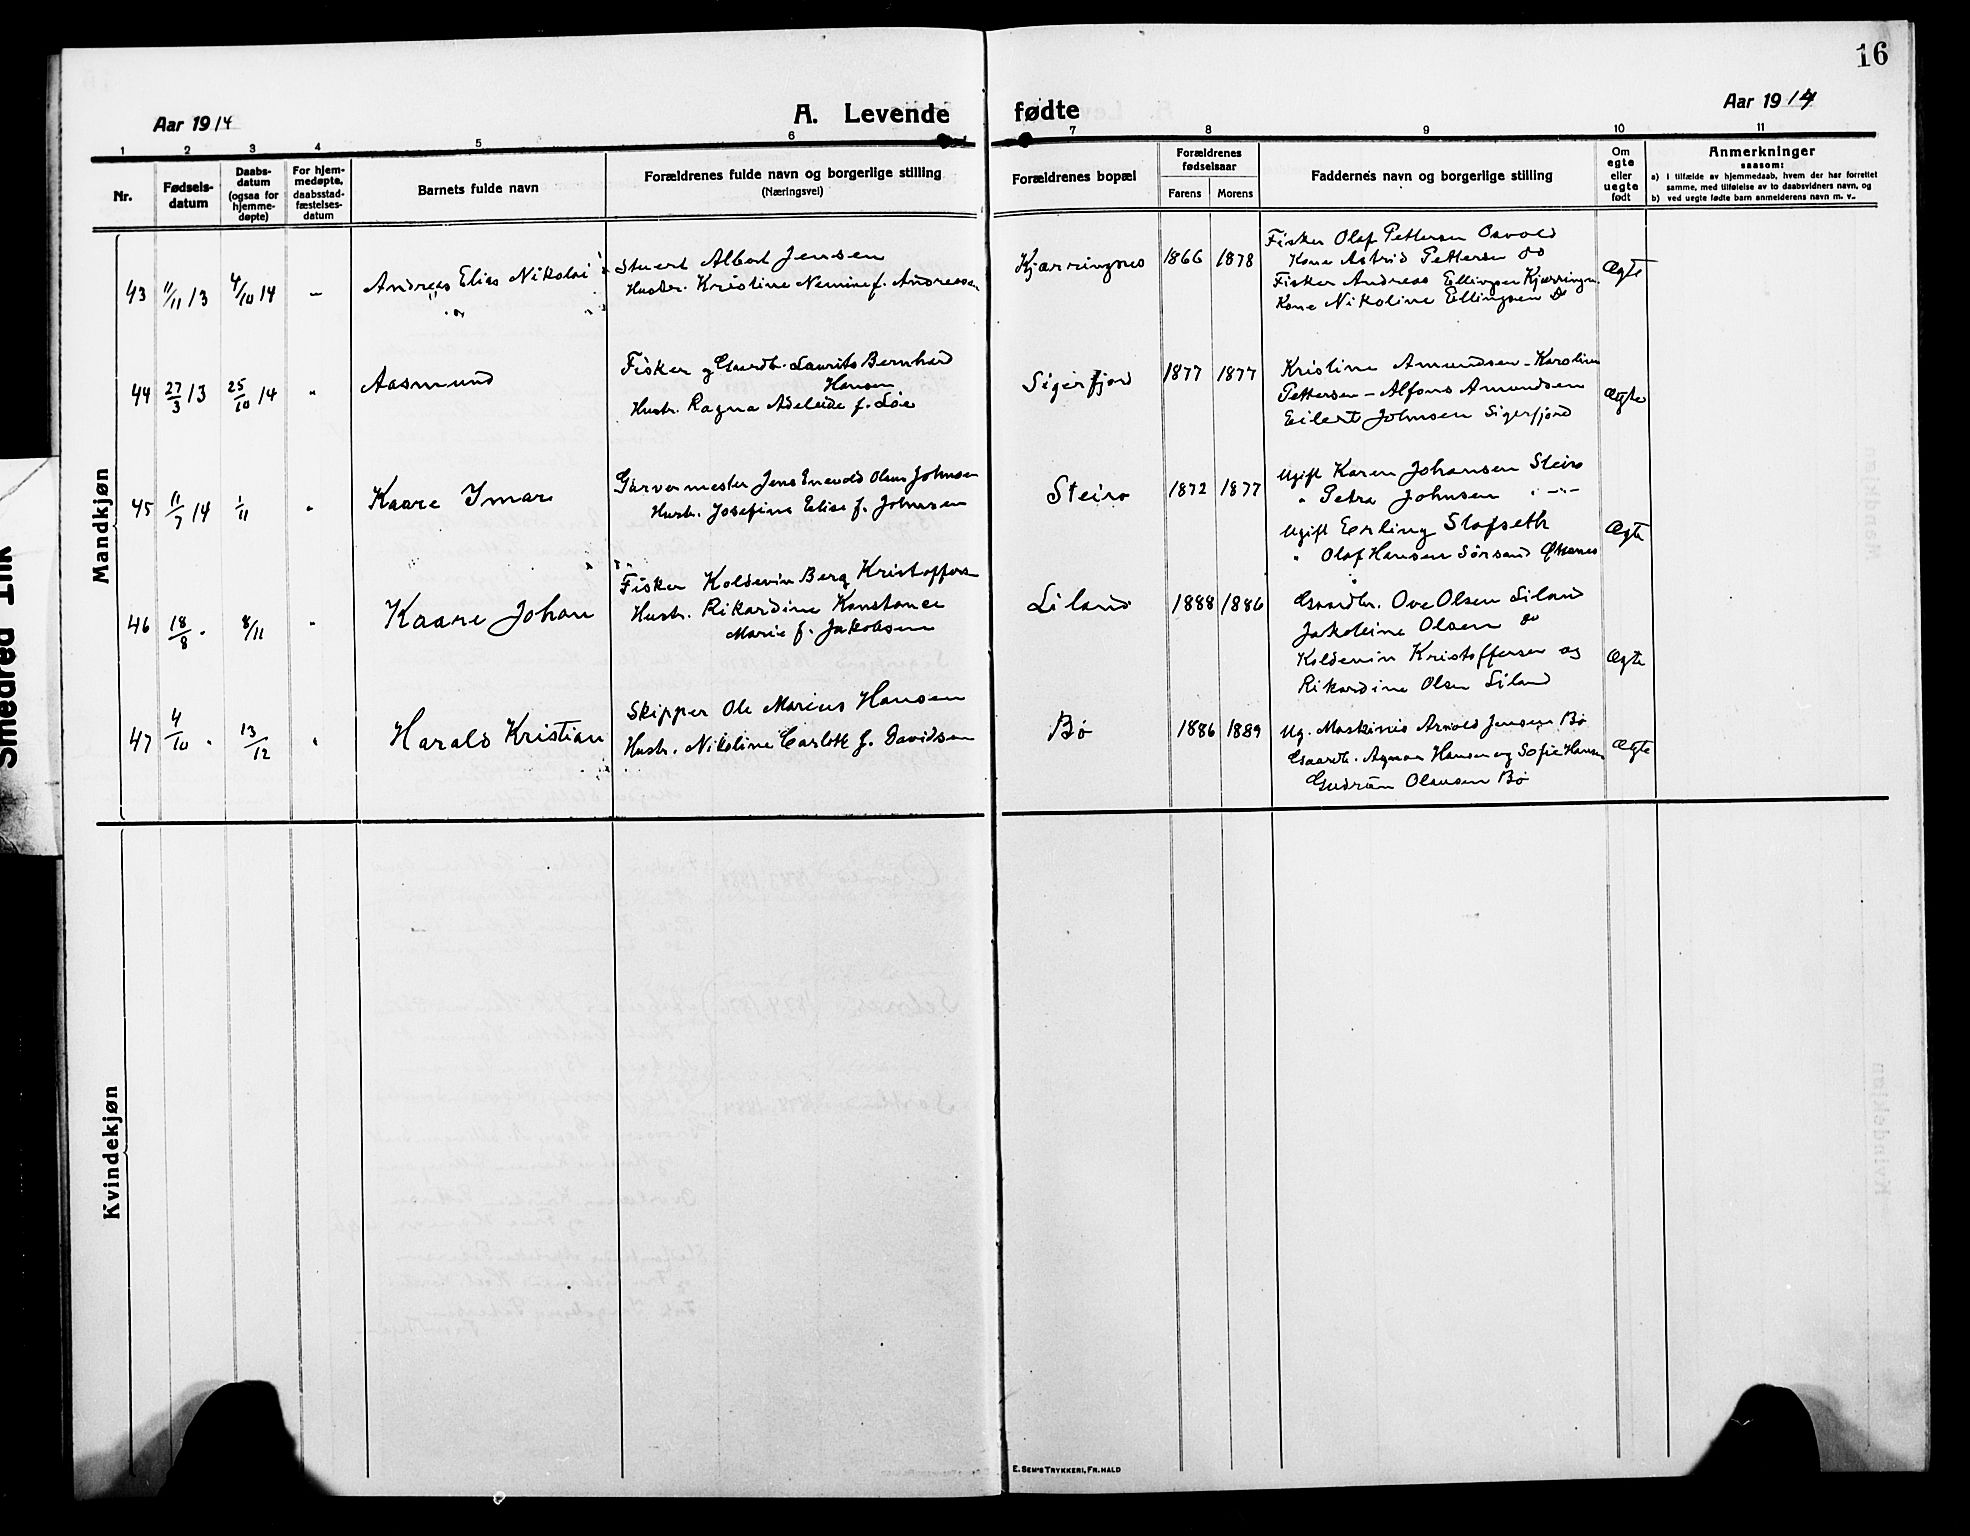 16
Aar 1914
A. Levende fødte
Aar 1914
1 2 3 4 5 6 7 8 9 10 11
Nr.
Fødsels-
datum
Daabs-
datum
(ogsaa for
hjemme-
døpte)
For hjem-
medøpte,
daabsstad-
fæstelses-
datum
Barnets fulde navn
Forældrenes fulde navn og borgerlige stilling
(Næringsvei)
Forældrenes bopæl
Forældrenes
fødselsaar
Farens Morens
Faddernes navn og borgerlige stilling
Om
egte
eller
uegte
født
Anmerkninger
saasom:
a) i tilfælde av hjemmedaab, hvem der har forrettet
samme, med tilføielse av to daabsvidners navn, og
b) ved uegte fødte barn anmelderens navn m. v.
Mandkjøn
43 11/11 13 4/10 14 - Andreas Elias Nikolai
Stuert Albert Jensen
Hustr. Kristine Nemine f. Andreassen
Kjærringnes 1866 1878
Fisker Olaf Pettersen Osvold
Kone Astrid Pettersen do
Fisker Andreas Ellingsen Kjærringn.
Kone Nikoline Ellingsen do
Ægte
44 27/3 13 25/10 14 " Aasmund
Fisker og Gaardb. Laurits Bernhard
Hansen
Hustr. Ragna Adeleide f. Löe
Sigerfjord 1877 1877
Kristine Amundsen - Karoline
Pettersen - Alfons Amundsen
Eilert Johnsen Sigerfjord
Ægte
45 11/7 14 1/11 " Kaare Ymar
Garvermester Jens Enevold Olaus Johnsen
Hustr. Josefine Elise f. Johnsen
Steiro 1872 1877
Ugift Karen Johansen Steiro
" Petra Johnsen " - " -
Ugift Erling Slofseth
" Olaf Hansen Sørsand
Ægte
46 18/8 " 8/11 " Kaare Johan
Fisker Koldevin Berg Kristoffers
Hustr. Rikardine Konstance
Marie f. Jakobsen
Liland 1888 1886
Gaardbr. Ove Olsen Liland
Jakobine Olsen do
Koldevin Kristoffersen og
Rikardine Olsen Liland
Ægte
47 4/10 " 13/12 " Harald Kristian
Skipper Ole Marius Hansen
Hustr. Nikoline Carlotte f. Davidsen
Bø 1886 1889
Ug. Maskinis Arnold Jensen Bø
Gaardb. Agnar Hansen og Sofie Hansen
Gudrun Olausen Bø
Ægte
Kvindekjøn
E. SEM'S TRYKKERI, FR.HALD
Smedred Ink